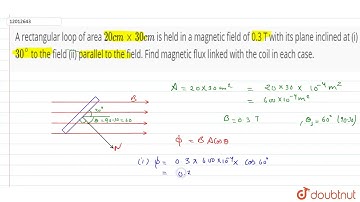 12012643
A rectangular loop of area 20cm × 30cm is held in a magnetic field of 0.3 T with its plane inclined at (i)
30° to the field (ii) parallel to the field. Find magnetic flux linked with the coil in each case.
A = 20×30 cm² = 20×30 ×10⁻⁴ m²
= 600×10⁻⁴ m²
B = 0.3 T , θ₁ = 60° (90-30)
B
30°
θ = 90-30=60
N
ϕ = B A cos θ
(i) ϕ = 0.3 × 600×10⁻⁴ × cos 60°
= 0
doubtnut